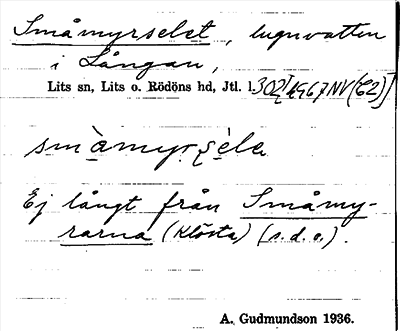 Småmyrselet, lugnvatten
i Långan,
Lits sn, Lits o. Rödöns hd, Jtl. l.
smàmyrsèle
Ej långt från Småmy-
rarna (Klösta) (s.d.o.).
A. Gudmundson 1936.